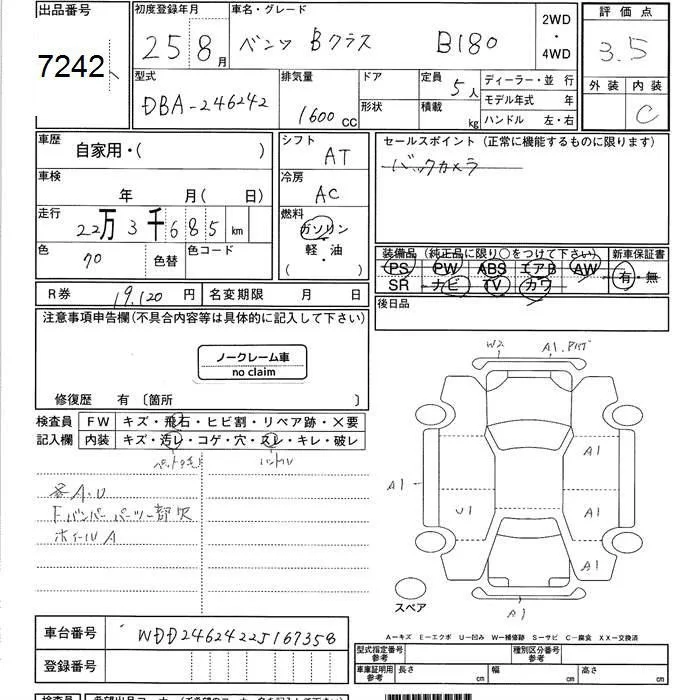 出品番号 初度登録年月 車名・グレード 2WD・4WD 評価点
7242 25 8月 ベンツ Bクラス B180 3.5
型式 排気量 ドア 定員 5人 ディーラー・並 行 外装 内装
DBA-246242 1600cc 形状 積載 kg モデル年式 年 C
ハンドル 左・右
車歴 自家用・( ) シフト AT セールスポイント(正常に機能するものに限ります)
車検 年 月( 日) 冷房 AC バックカメラ
走行 22万3千685km 燃料 ガソリン 軽・油 ( )
色 70 色替 色コード 装備品(純正品に限り○をつけて下さい) 新車保証書
PS PW ABS エアB AW 有・無
SR ナビ TV カワ
R券 19,120円 名変期限 月 日 後日品
注意事項申告欄(不具合内容等は具体的に記入して下さい)
ノークレーム車
no claim
修復歴 有 〔箇所 〕
W2 A1
検査員 FW キズ・飛石・ヒビ割・リペア跡・×要
記入欄 内装 キズ・汚レ・コゲ・穴・スレ・キレ・破レ
ハンドル
A1
A1 U1 A1
各A.U
Fバンパーパーツ一部欠
ホイールA
A1
スペア A1
A−キズ E−エクボ U−凹み W−補修跡 S−サビ C−腐食 XX−交換済
車台番号 WDD2462422J167358
登録番号
型式指定番号 参考 種別区分番号 参考
車庫証明用 参考 長さ cm 幅 cm 高さ cm